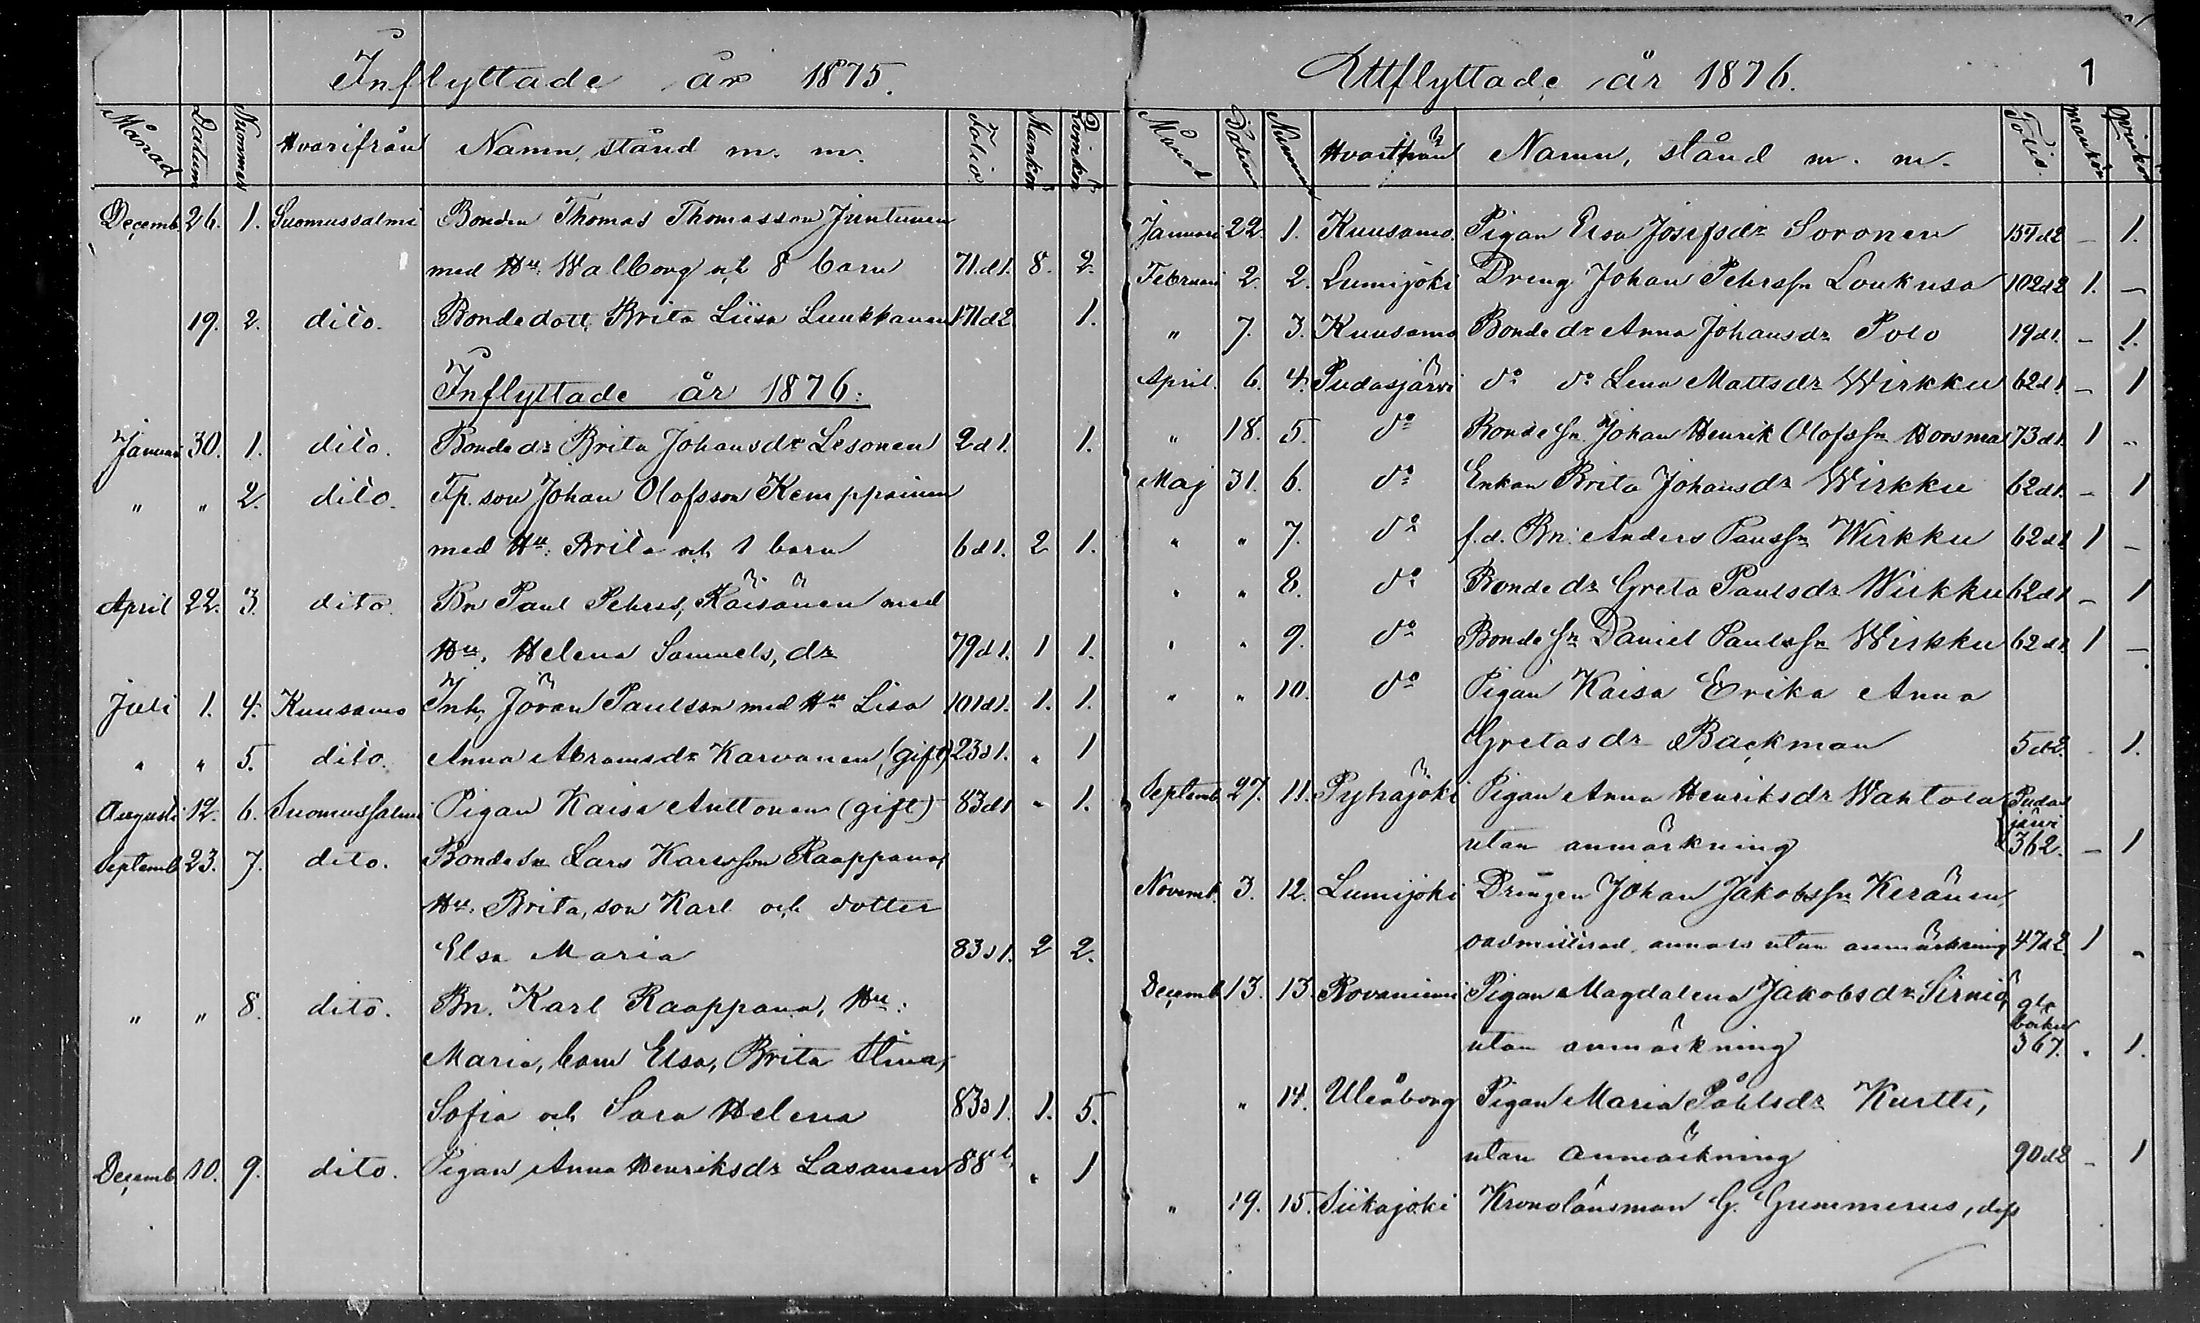 Inflyttade år 1875.
Månad Datum Nummer Hvarifrån Namn, stånd m. m. Folio Mankön Qvinkön
Decemb 26. 1. Suomussalmi Bonden Thomas Thomasson Juntunen
med Hu. Walborg och 8 barn 71.d1. 8. 2.
19. 2. dito. Bondedott. Brita Liisa Luukkanen 171d2 1.
Inflyttade år 1876.
Januari 30. 1. dito. Bondedr Brita Johansdr Lesonen 2d1. 1.
" " 2. dito. Tp. son Johan Olofsson Kemppainen
med Hu: Brita och 1 barn 6d1. 2 1.
April 22. 3. dito. Bn Paul Pehrss, Käisänen med
Hu, Helena Samuels, dr 79d1. 1 1.
Juli 1. 4. Kuusamo Inh, Jöran Paulson med Hu Lisa 101d1. 1. 1.
" " 5. dito. Anna Abramsdr Karvonen, (gift) 23d1. " 1
Augusti 12. 6. Suomussalmi Pigan Kaisa Anttonen (gift) 83d1 " 1.
Septemb 23. 7. dito. Bondesn Lars Karlsson Raappana,
Hu. Brita, son Karl och dotter
Elsa Maria 83d1. 2 2.
" " 8. dito. Bn. Karl Raappana, Hu:
Maria, barn Elsa, Brita Stina,
Sofia och Sara Helena 83d1. 1. 5.
Decemb 10. 9. dito. Pigan Anna Henriksdr Lasanen 88 " 1
Uttflyttade år 1876. 1
Månad Datum Nummer Hvarthän Namn, stånd m. m. Folio. mankön qvinkön
Januari 22. 1. Kuusamo. Pigan Elsa Josefsdr Soronen 157d2 - 1.
Februari 2. 2. Lumijoki Dreng Johan Pehrssn Loukusa 102d2 1. -
" 7. 3. Kuusamo Bondedr Anna Johansdr Polo 19d1. - 1.
April. 6. 4. Pudasjärvi do do Lena Mattsdr Wirkku 62d1 - 1
" 18. 5. do Bondesn. Johan Henrik Olofssn Horsma 73d1. 1 "
Maj 31. 6. do Enkan Brita Johansdr Wirkku 62d1. - 1
" " 7. do f.d. Bn: Anders Paulssn Wirkku 62d1 1 -
" " 8. do Bondedr Greta Paulsdr Wirkku 62d1 - 1
" " 9. do Bondesn Daniel Paulssn Wirkku 62d1. 1 -
" " 10. do Pigan Kaisa Erika Anna
Gretasdr Backman 5d2. - 1.
Septemb 27. 11. Pyhäjoki Pigan Anna Henriksdr Wahtola Pudas
järvi
utan anmärkning 362. - 1
Novemb. 3. 12. Lumijoki Drängen Johan Jakobssn Keränen,
oadmitterad, annars utan anmärkning 47d2 1 "
Decemb 13. 13. Rovaniemi Pigan Magdalena Jakobsdr Sirniö, gla
boken
utan anmärkning 367. " 1.
" 14. Uleåborg Pigan Maria Påhlsdr Kurtti,
utan anmärkning 90d2 - 1
" 19. 15. Siikajoki Kronolänsman G. Gummerus, dess